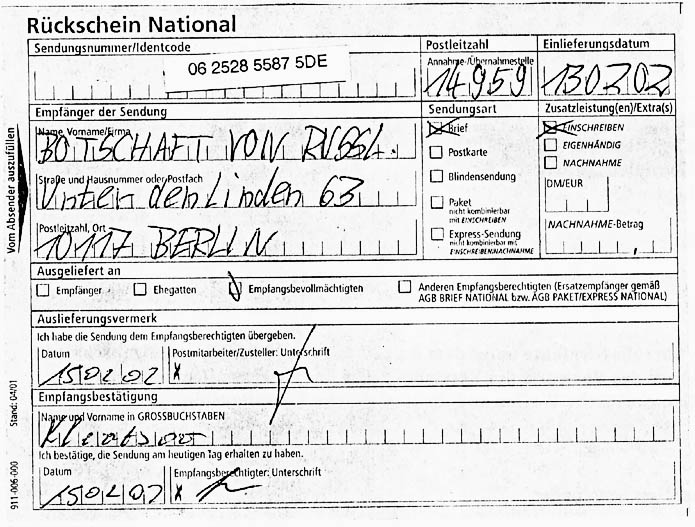 Rückschein National
Sendungsnummer/Identcode
06 2528 5587 5DE
Postleitzahl
Annahme-/Übernahmestelle
14959
Einlieferungsdatum
130202
Vom Absender auszufüllen
Empfänger der Sendung
Name, Vorname/Firma
BOTSCHAFT VON RUSSL.
Straße und Hausnummer oder Postfach
Unter den Linden 63
Postleitzahl, Ort
10117 BERLIN
Sendungsart
Brief
Postkarte
Blindensendung
Paket
nicht kombinierbar
mit EINSCHREIBEN
Express-Sendung
nicht kombinierbar mit
EINSCHREIBEN/NACHNAHME
Zusatzleistung(en)/Extra(s)
EINSCHREIBEN
EIGENHÄNDIG
NACHNAHME
DM/EUR
NACHNAHME-Betrag
Ausgeliefert an
Empfänger
Ehegatten
Empfangsbevollmächtigten
Anderen Empfangsberechtigten (Ersatzempfänger gemäß
AGB BRIEF NATIONAL bzw. AGB PAKET/EXPRESS NATIONAL)
Auslieferungsvermerk
Ich habe die Sendung dem Empfangsberechtigten übergeben.
Datum
Postmitarbeiter/Zusteller: Unterschrift
150202
X
Empfangsbestätigung
Name und Vorname in GROSSBUCHSTABEN
Ich bestätige, die Sendung am heutigen Tag erhalten zu haben.
Datum
Empfangsberechtigter: Unterschrift
150202
X
911-006-000 Stand: 04/01